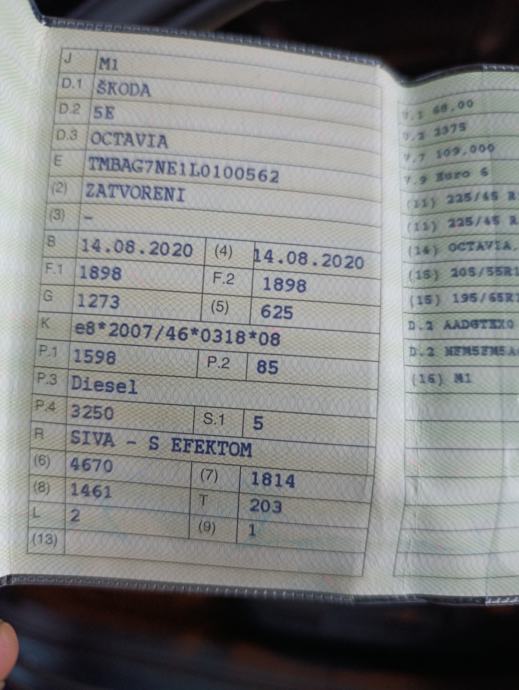 J M1
D.1 ŠKODA
D.2 5E
D.3 OCTAVIA
E TMBAG7NE1L0100562
(2) ZATVORENI
(3) –
B 14.08.2020 (4) 14.08.2020
F.1 1898 F.2 1898
G 1273 (5) 625
K e8*2007/46*0318*08
P.1 1598 P.2 85
P.3 Diesel
P.4 3250 S.1 5
R SIVA - S EFEKTOM
(6) 4670 (7) 1814
(8) 1461 T 203
L 2 (9) 1
(13)
V.1 68,00
V.2 2375
V.7 109,000
V.9 Euro 6
(11) 225/45 R
(11) 225/45 R
(14) OCTAVIA,
(15) 205/55R1
(15) 195/65R1
D.2 AADGTEX0
D.2
(16) M1